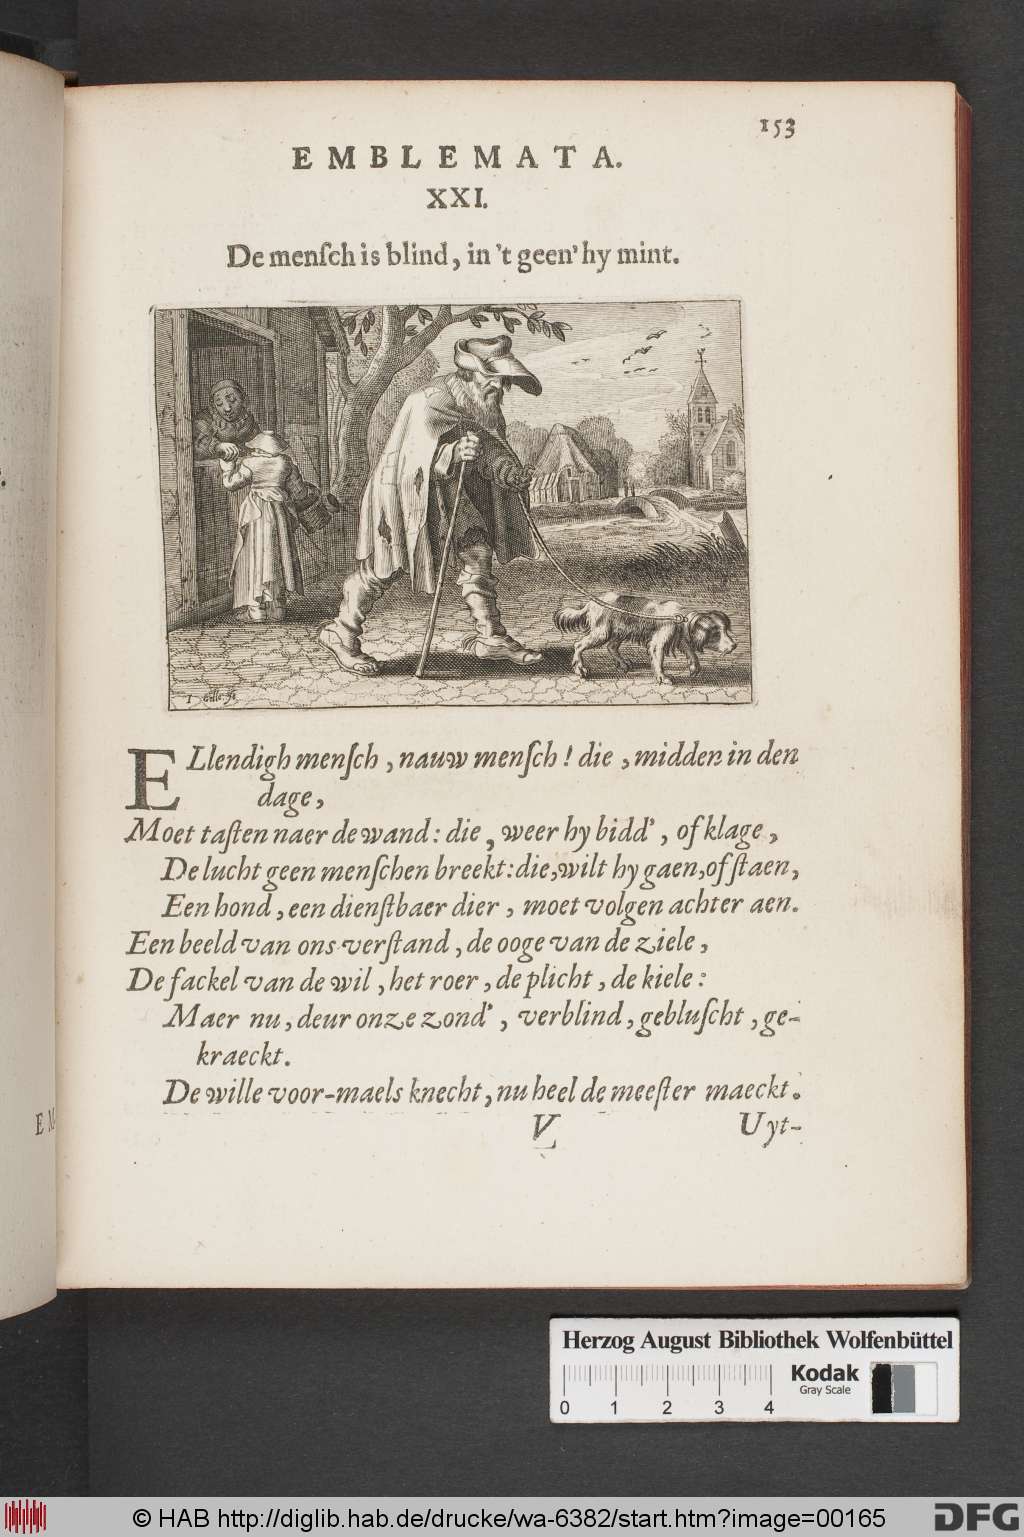 153
EMBLEMATA.
XXI.
De menſch is blind, in 't geen' hy mint.
I Gillis fe
ELlendigh menſch, nauw menſch! die, midden in den
dage,
Moet taſten naer de wand: die, weer hy bidd', of klage,
De lucht geen menſchen breekt: die, wilt hy gaen, of ſtaen,
Een hond, een dienſtbaer dier, moet volgen achter aen.
Een beeld van ons verſtand, de ooge van de ziele,
De fackel van de wil, het roer, de plicht, de kiele:
Maer nu, deur onze zond', verblind, gebluſcht, ge-
kraeckt.
De wille voor-maels knecht, nu heel de meeſter maeckt.
V
Uyt-
Herzog August Bibliothek Wolfenbüttel
Kodak
Gray Scale
0 1 2 3 4
© HAB http://diglib.hab.de/drucke/wa-6382/start.htm?image=00165
DFG